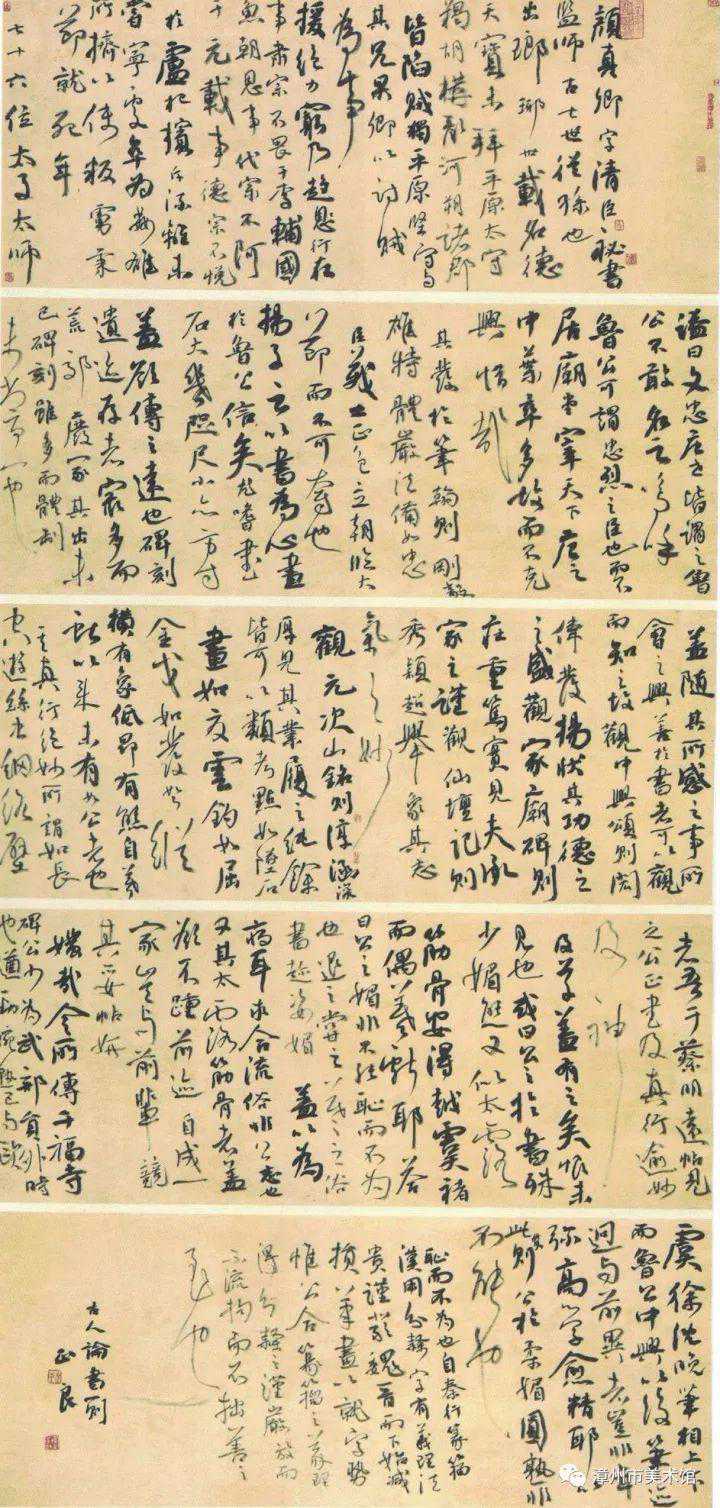 顏真卿字清臣秘書
監師古七世從孫也
出瑯琊世載名德
天寶末拜平原太守
羯胡構亂河朔諸郡
皆陷賊獨平原堅守与
其兄杲卿以討賊
為事
援絕力窮乃趨行在
事肅宗不畏于李輔國
魚朝恩事代宗不阿
于元載事德宗不悅
於盧杞擯斥流離未
嘗寧處卒為姦雄
所擠以使叛虜秉
節就死年
七十六位太子太師
謚曰文忠唐之皆謂之魯
公不敢名之嗚呼
魯公可謂忠烈之臣也而不
居廟堂宰天下唐之
中葉卒多故而不克
興惜哉
其發於筆翰則剛毅
雄特體嚴法備如忠
臣義士正色立朝臨大
節而不可奪也
揚子云以書為心畫
於魯公信矣尤嗜書
石大幾咫尺小亦方寸
蓋欲傳之遠也碑刻
遺迹存者最多而
荒郊廢冢其出未
已碑刻雖多而體制
未嘗一也
蓋隨其所感之事所
會之興善於書者可以觀
而知之故觀中興頌則閎
偉發揚狀其功德之
之盛觀家廟碑則
莊重篤實見夫承
家之謹觀仙壇記則
秀穎超舉象其志
氣之妙
觀元次山銘則淳涵深
厚見其業履之純餘
皆可以類考點如墜石
畫如夏雲鈎如屈
金戈如發弩縱
橫有象低昂有態自羲
獻以來未有如公者也
其真行絕妙所謂如長
空遊絲虫網絡壁
者吾于蔡明遠帖見
之公正書及真行逾妙
及神
及草蓋有之矣恨未
見也或曰公之於書殊
少媚態又似太露
筋骨安得越虞褚
而偶羲獻耶答
曰公之媚非不能恥而不为
也退之嘗云羲之之俗
書趁姿媚 蓋以為
病耳求合流俗非公志也
又其太露筋骨者蓋
欲不踵前迹自成一
家豈与前輩競
其妥帖妍
媸哉今所傳千福寺
碑公少为武部員外時
也遒勁婉熟已与歐
虞徐沈晚筆相上下
而魯公中興以後筆迹
迥与前異者豈非年
弥高學愈精耶
此則公於柔媚圓熟非
不能也
恥而不為也自秦行篆籀
漢用分隸字有義理法
貴謹嚴魏晉而下始減
損筆畫以就字勢
惟公合篆籀之義理
得分隸之謹嚴放而
不流拘而不拙善之
至也
古人論書一則
漳州市美術館